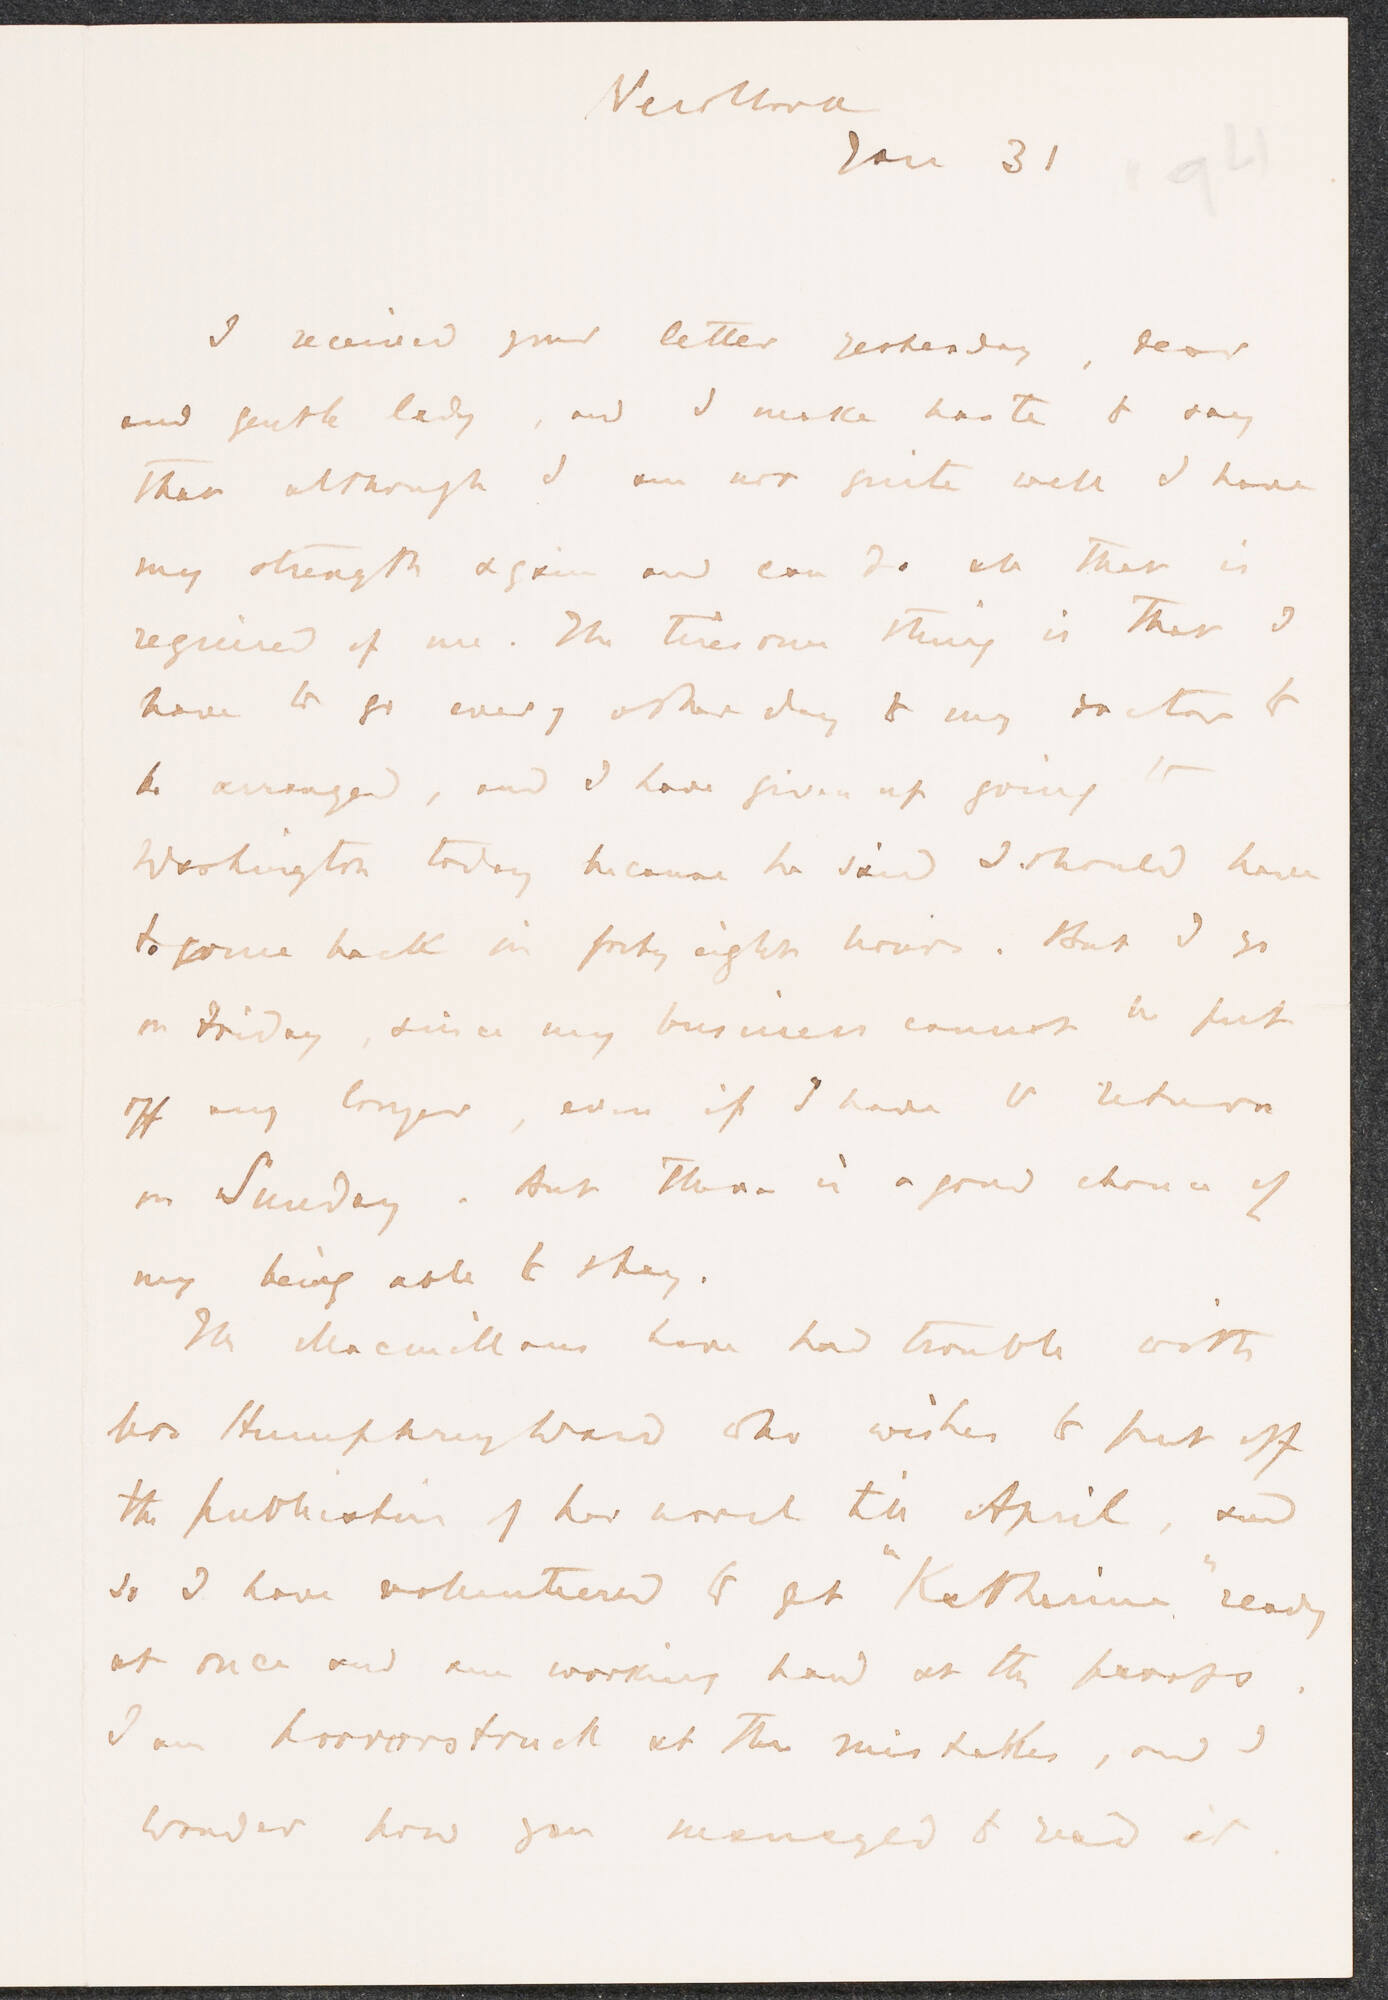 New York
Jan 31
I received your letter yesterday, dear
and gentle lady, and I make haste to say
that although I am not quite well I have
my strength again and can do all that is
required of me. The tiresome thing is that I
have to go every other day to my doctor to
be arranged, and I have given up going to
Washington today because he said I should have
to come back in forty eight hours. But I go
on Friday, since my business cannot be put
off any longer, even if I have to return
on Sunday. But there is a good chance of
my being able to stay.
The Macmillans have had trouble with
Mrs Humphrey Ward who wishes to put off
the publication of her novel till April, and
so I have volunteered to get "Katherine" ready
at once and am working hard at the proofs.
I am horrorstruck at the mistakes, and I
wonder how you managed to read it.